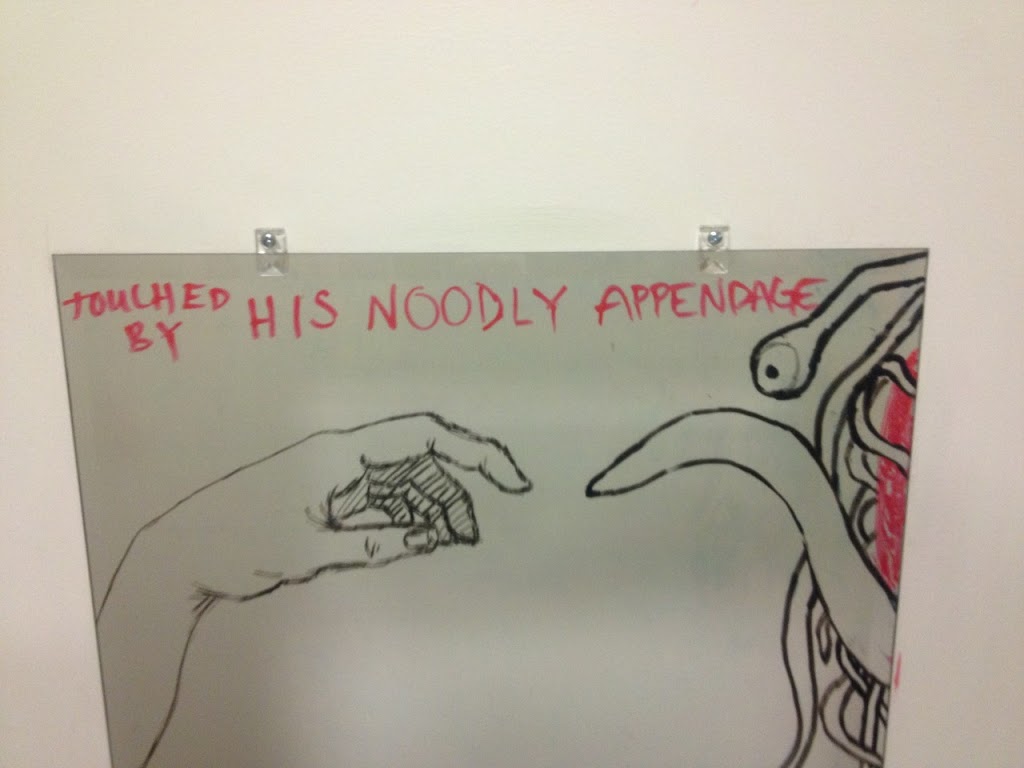 TOUCHED HIS NOODLY APPENDAGE
BY